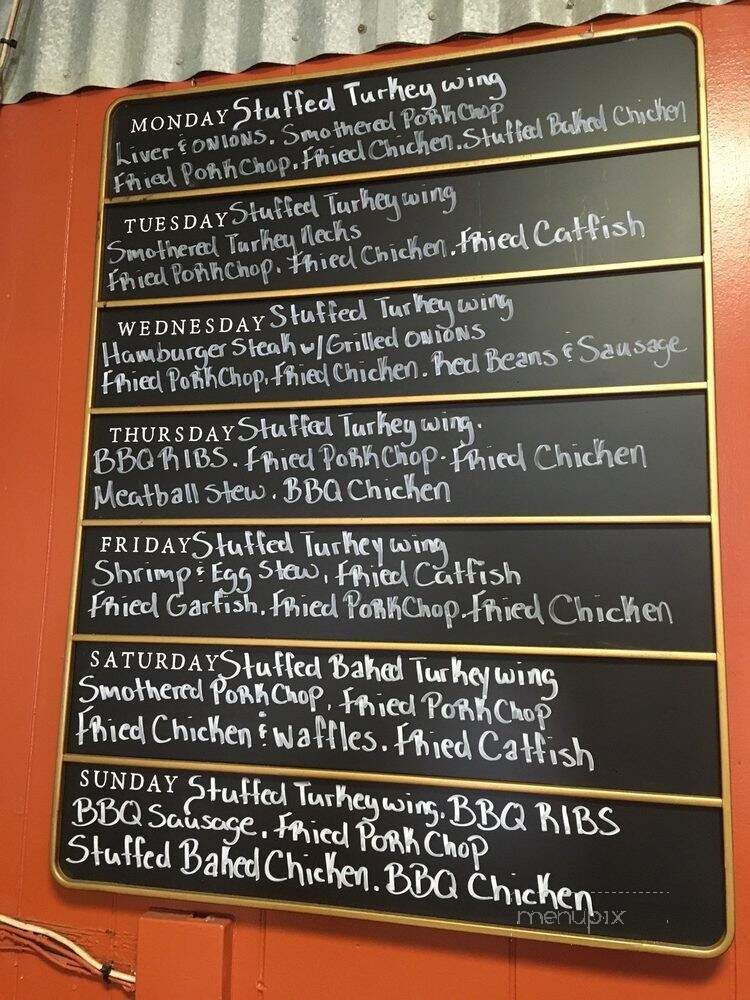 MONDAY Stuffed Turkey wing
Liver & ONIONS. Smothered PorkChop
Fried PorkChop. Fried Chicken. Stuffed Baked Chicken
TUESDAY Stuffed Turkey wing
Smothered Turkey Necks
Fried PorkChop. Fried Chicken. Fried Catfish
WEDNESDAY Stuffed Turkey wing
Hamburger Steak w/Grilled ONIONS
Fried PorkChop. Fried Chicken. Red Beans & Sausage
THURSDAY Stuffed Turkey wing.
BBQ RIBS. Fried PorkChop. Fried Chicken
Meatball Stew. BBQ Chicken
FRIDAY Stuffed Turkey wing
Shrimp & Egg Stew, Fried Catfish
Fried Garfish. Fried PorkChop. Fried Chicken
SATURDAY Stuffed Baked Turkey wing
Smothered PorkChop, Fried PorkChop
Fried Chicken & Waffles. Fried Catfish
SUNDAY Stuffed Turkey wing. BBQ RIBS
BBQ Sausage. Fried Pork Chop
Stuffed Baked Chicken. BBQ Chicken
menupix